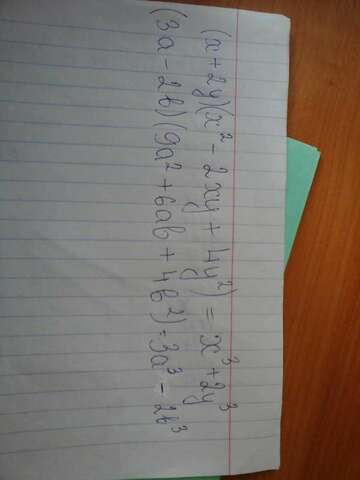 (x+2y)(x²-2xy+4y²) = x³+2y³
(3a-2b)(9a²+6ab+4b²)=3a³-2b³